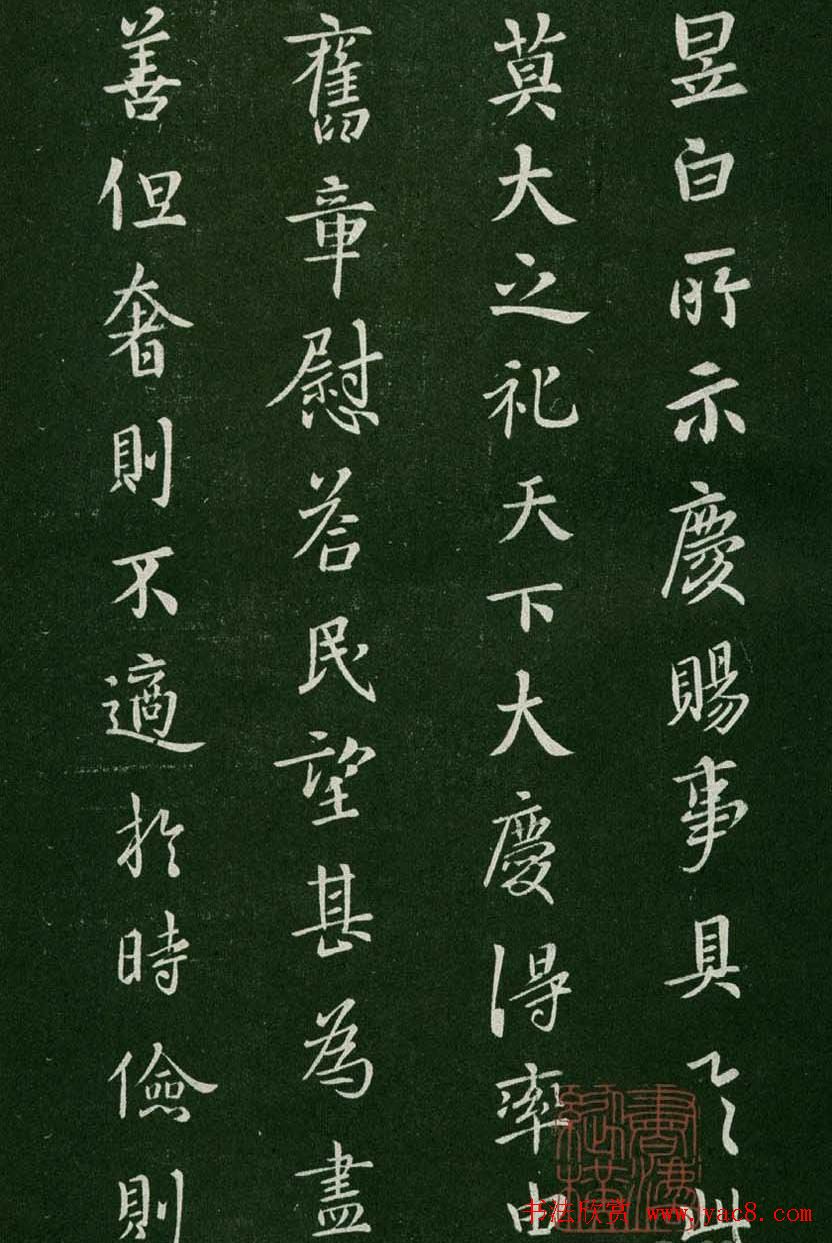 昱白所示慶賜事具
莫大之祀天下大慶得率由
舊章慰荅民望甚為盡
善但奢則不適於時儉則
书法欣赏 www.yac8.com